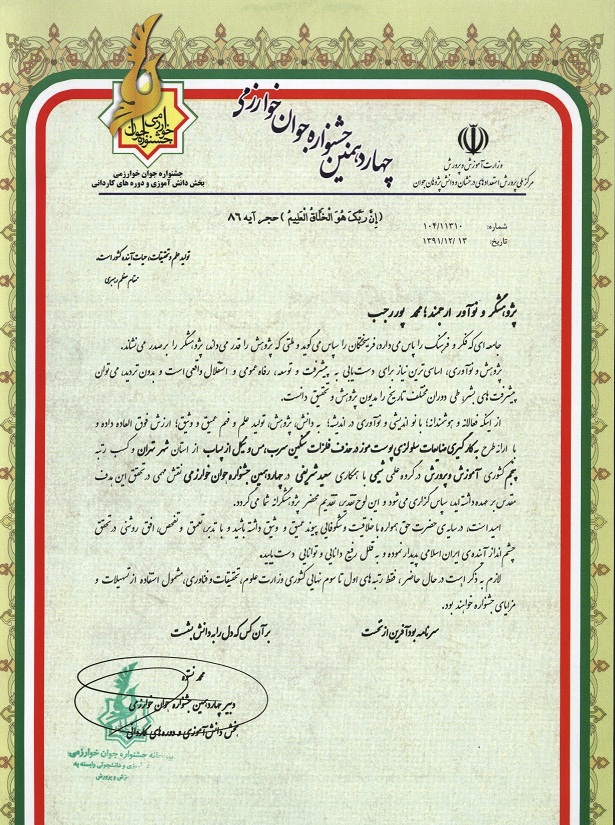 چهاردهمین جشنواره جوان خوارزمی
جشنواره جوان
خوارزمی
جشنواره جوان خوارزمی
بخش دانش آموزی و دوره های کاردانی
وزارت آموزش و پرورش
مرکز ملی پرورش استعدادهای درخشان و دانش پژوهان جوان
(إنَّ رَبَّکَ هُوَ الْخَلّاقُ الْعَلِیمُ) حجر، آیه ۸۶
شماره: ۱۰۴/۱۱۳۱۰
تاریخ: ۱۳۹۱/۱۲/۱۳
تولید علم و تحقیقات، حیات آینده کشور است.
مقام معظم رهبری
پژوهشگر و نوآور ارجمند؛ محمد پوررجب
جامعه ای که فکر و فرهنگ را پاس می دارد، فرهیختگان را سپاس می گوید و ملتی که پژوهش را قدر می داند، پژوهشگر را بر صدر می نشاند.
پژوهش و نوآوری، اساسی ترین نیاز برای دست یابی به پیشرفت و توسعه، رفاه عمومی و استقلال واقعی است و بدون تردید، می توان
پیشرفت های بشر، طی دوران مختلف تاریخ را مدیون پژوهش و تحقیق دانست.
از اینکه فعالانه و هوشمندانه؛ با نو اندیشی و نوآوری در اندیشه؛ به دانش، پژوهش، تولید علم و فهم عمیق و وثیق؛ ارزش فوق العاده داده و
با ارائه طرح به کارگیری ضایعات سلولزی پوست موز در حذف فلزات سنگین سرب، مس و نیکل از پساب از استان شهر تهران و کسب رتبه
پنجم کشوری آموزش و پرورش در گروه علمی شیمی با همکاری سعید شریفی در چهاردهمین جشنواره جوان خوارزمی نقش مهمی در تحقق این هدف
مقدس بر عهده داشته اید، سپاس گزاری می شود و این لوح تقدیر، تقدیم محضر پژوهشگرانه شما می گردد.
امید است، در سایه ی حضرت حق همواره با خلاقیت و شکوفایی پیوند عمیق و وثیق داشته باشید و با تدبر، تعمق و تفحص، افق روشنی در تحقق
چشم انداز آینده ی ایران اسلامی پدیدار نموده و به قلل رفیع دانایی و توانایی دست یابید.
لازم به ذکر است در حال حاضر، فقط رتبه های اول تا سوم نهایی کشوری وزارت علوم، تحقیقات و فناوری، مشمول استفاده از تسهیلات و
مزایای جشنواره خواهند بود.
سر نامه بود آفرین از نخست
بر آن کس که دل را به دانش بشست
محمد
دبیر چهاردهمین جشنواره جوان خوارزمی
بخش دانش آموزی و دوره های کاردانی
جشنواره جوان خوارزمی
آموزی و دانشجوئی وابسته به
آموزش و پرورش